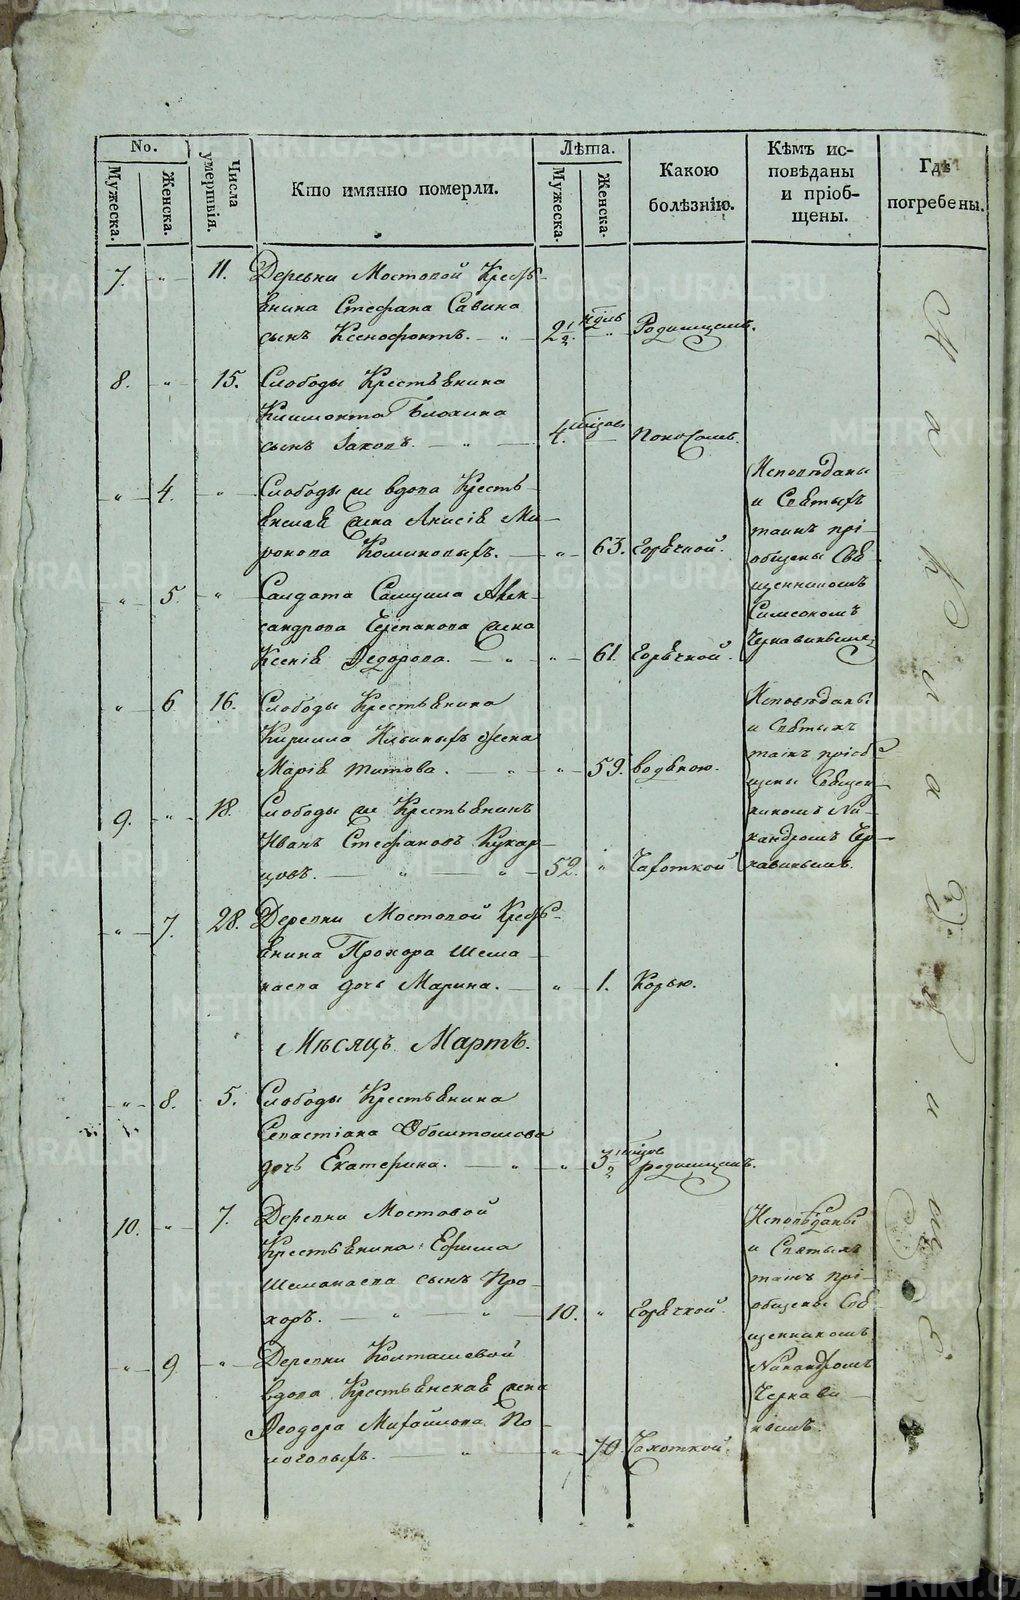 No.
Мужеска.
Женска.
Числа умертвія.
Кто имянно померли.
Лѣта.
Мужеска.
Женска.
Какою болѣзнію.
Кѣмъ ис-
повѣданы
и пріоб-
щены.
Гдѣ
погребены.
7. " 11. Деревни Мостовой Кресть-
янина Стефана Савина
сынъ Ксенофонтъ. — " — 2½ нѣдѣль " Родимцемъ.
8. " 15. Слободы Крестьянина
Климонта Блохина
сынъ Іаковъ. — " — 4. — Поносомъ.
" 4. " Слободы вдова Кресть-
янская жена Анисія Ми-
ронова — " 63. Горячкой.
Исповѣданы
и Святыхъ
таинъ прі-
общены Свя
щенникомъ
Симеономъ
" 5. " Салдата Самуила Алек-
сандрова Черепанова жена
Ксенія Ѳедорова. — " — " 61. Горячкой.
" 6 16. Слободы Крестьянина
Кирилла Ильиныхъ жена
Марія Титова. — " — " 59. водяною.
Исповѣданы
и Святыхъ
таинъ пріоб
щены Священ
никомъ Ни-
кандромъ Чер-
навинымъ.
9. " 18. Слободы Крестьянинъ
Иванъ Стефановъ Кухар-
цовъ. — " — " — 52. " Чахоткой
" 7. 28. Деревни Мостовой Кресть-
янина Прохора Шема
наева дочь Марина. — " — 1. Корью.
Мѣсяцъ Мартъ.
" 8. 5. Слободы Крестьянина
Севастіана
дочь Екатерина. — " — " 3½ родимцемъ.
10. " 7. Деревни Мостовой
Крестьянина Ефима
Шеманаева сынъ Про-
хоръ. — " — " — 10. " Горячкой.
Исповѣданы
и Святыхъ
таинъ прі-
общены Свя
щенникомъ
Никандромъ
Чернави-
нымъ.
" 9. " Деревни Колташевой
вдова Крестьянская жена
Ѳеодора Михайлова По
— " — " 70. Чахоткой.
METRIKI.GASO-URAL.RU